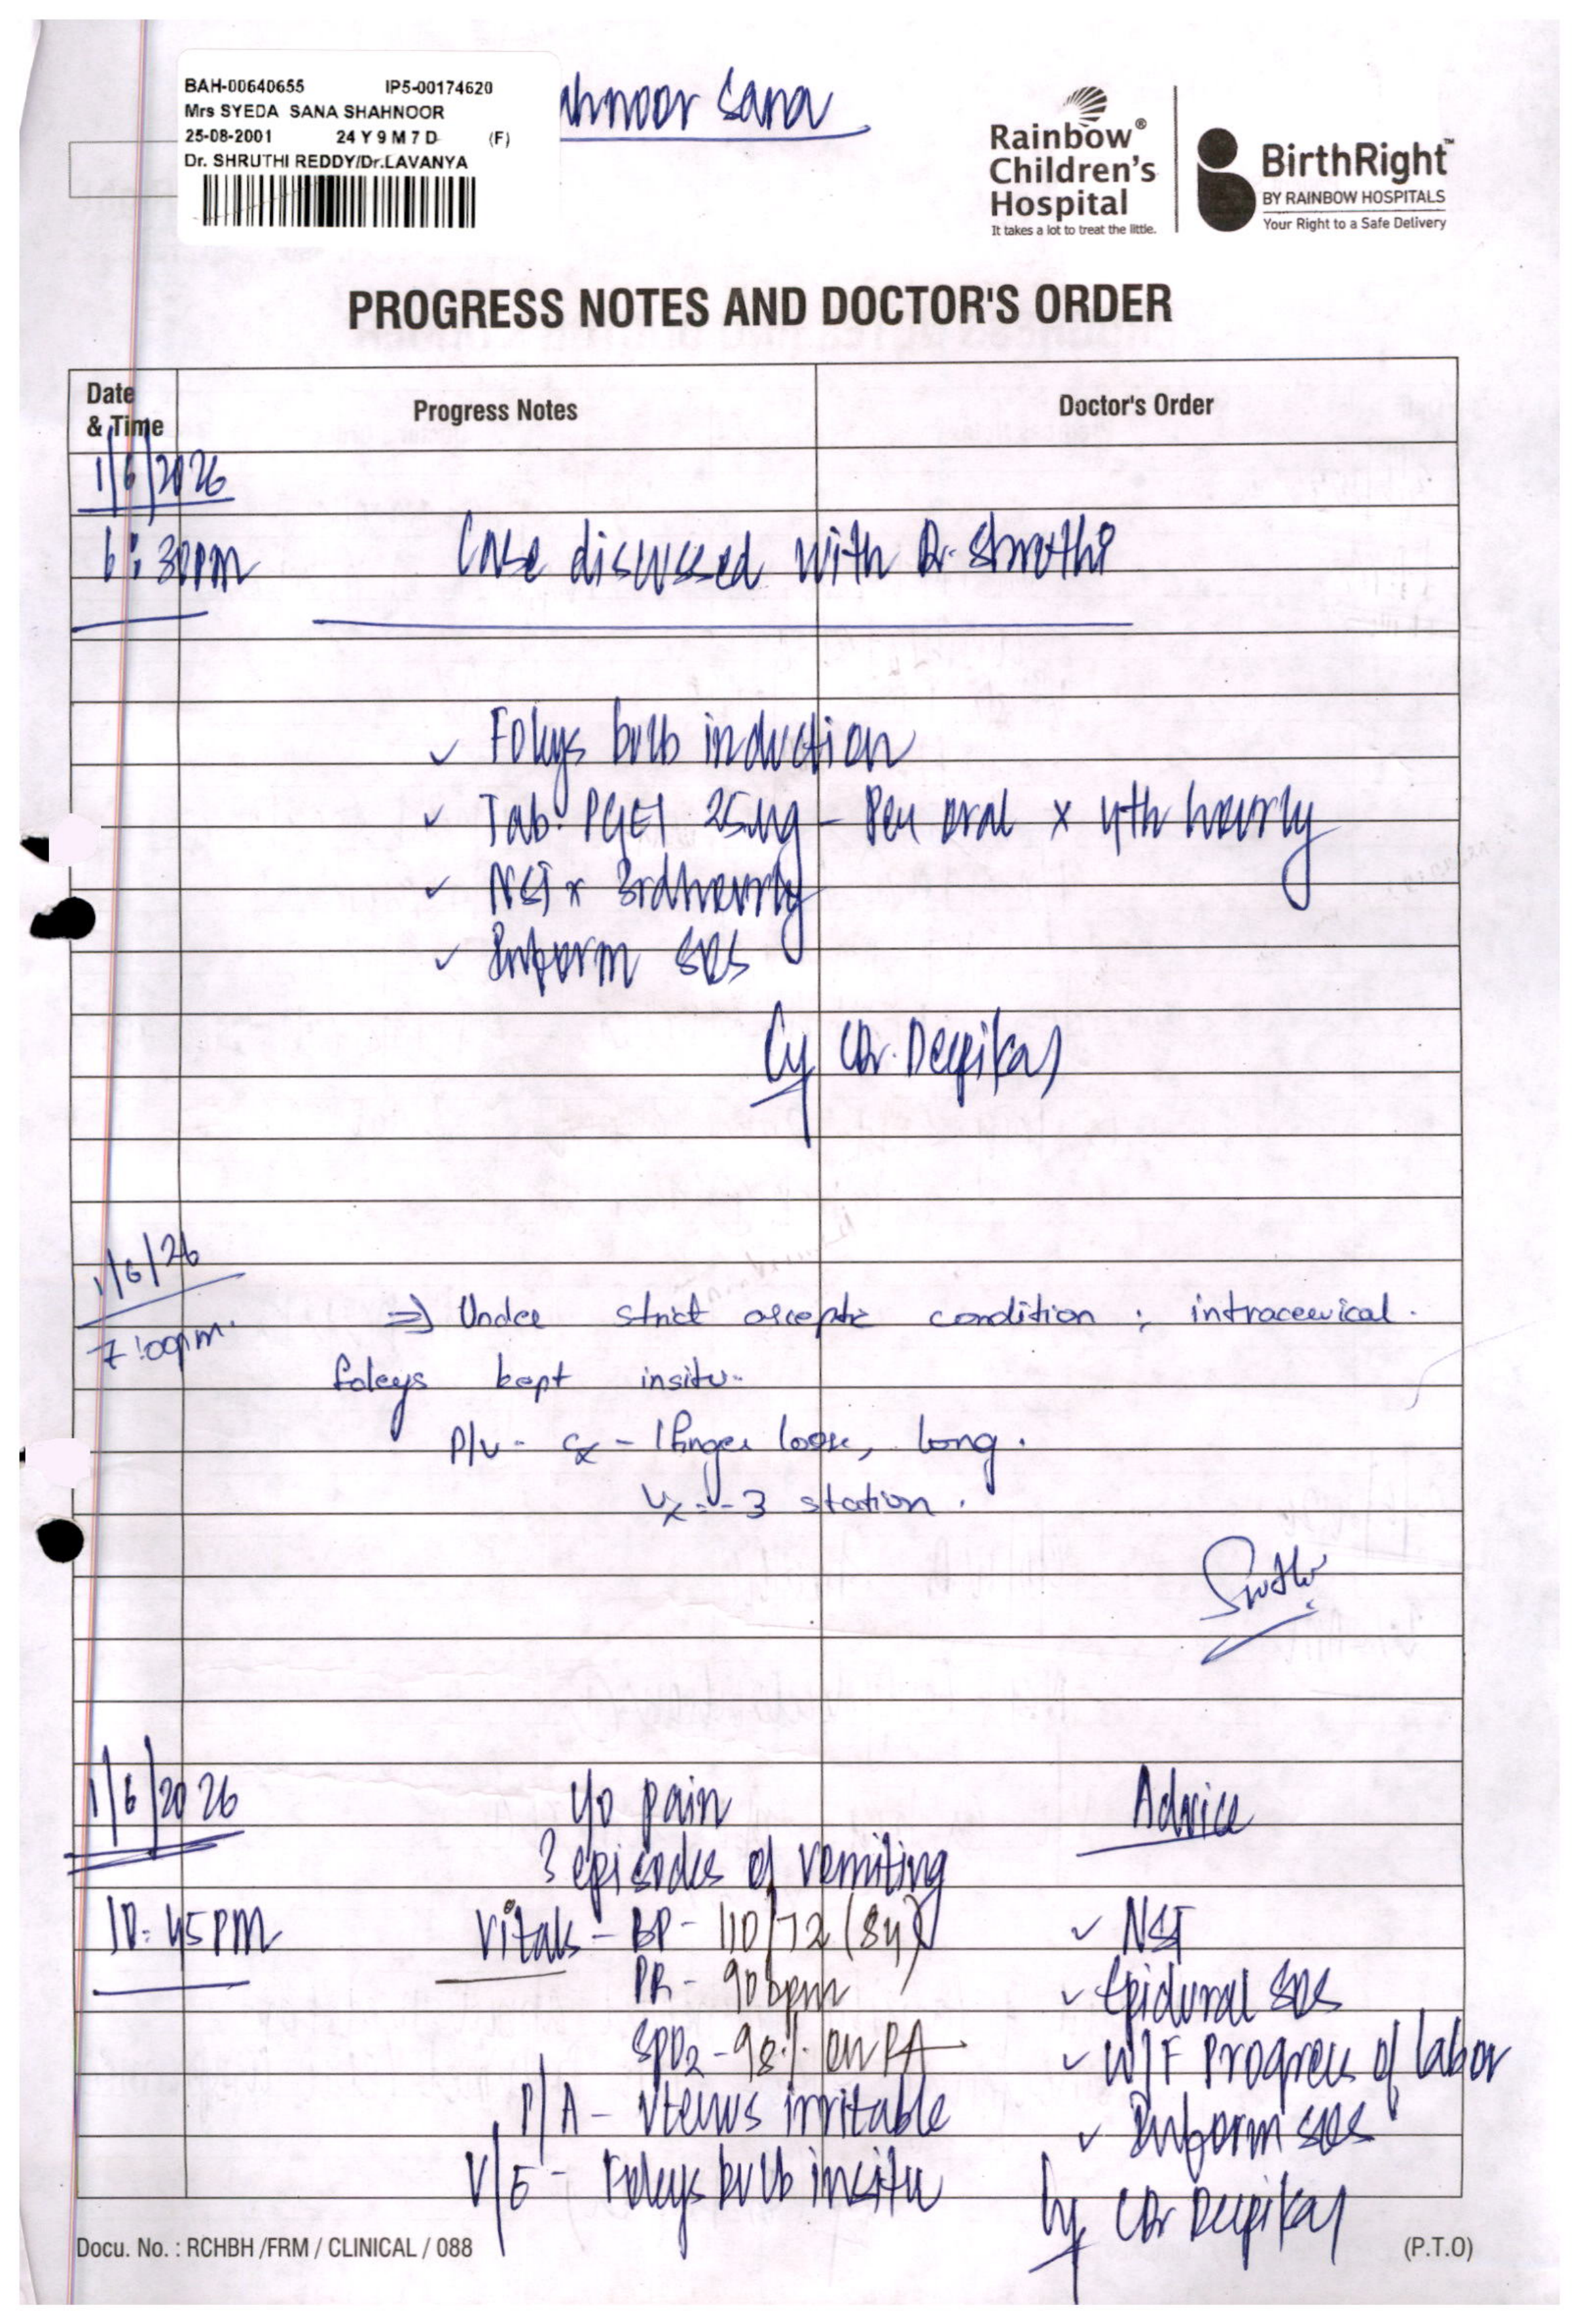 BAH-00640655 IP5-00174620
Mrs SYEDA SANA SHAHNOOR
25-08-2001 24 Y 9 M 7 D (F)
Dr. SHRUTHI REDDY/Dr.LAVANYA
ahnoor Sana
Rainbow®
Children's
Hospital
It takes a lot to treat the little.
BirthRight™
BY RAINBOW HOSPITALS
Your Right to a Safe Delivery
PROGRESS NOTES AND DOCTOR'S ORDER
Date
& Time
Progress Notes
Doctor's Order
1/6/2026
6:30pm Case discussed with Dr. Shruthi
✓ Foleys bulb induction
✓ Tab. PGE1 25µg - Per oral x 4th hourly
✓ NST x 3rd hourly
✓ Inform SOS
(Dr. Deepika)
1/6/26
7:00pm. ⇒ Under strict aseptic condition ; intracervical.
foleys kept insitu.
P/V - Cx - 1 finger loose, long.
Vx - -3 station.
1/6/2026 c/o pain Advice
3 episodes of vomiting
10:45PM Vitals - BP - 110/72 (84) ✓ NST
PR - 90bpm ✓ Epidural SOS
SPO2 - 98% on RA ✓ W/F Progress of labor
P/A - uterus irritable ✓ Inform SOS
V/E - Foleys bulb insitu
(Dr Deepika)
Docu. No. : RCHBH /FRM / CLINICAL / 088 (P.T.O)